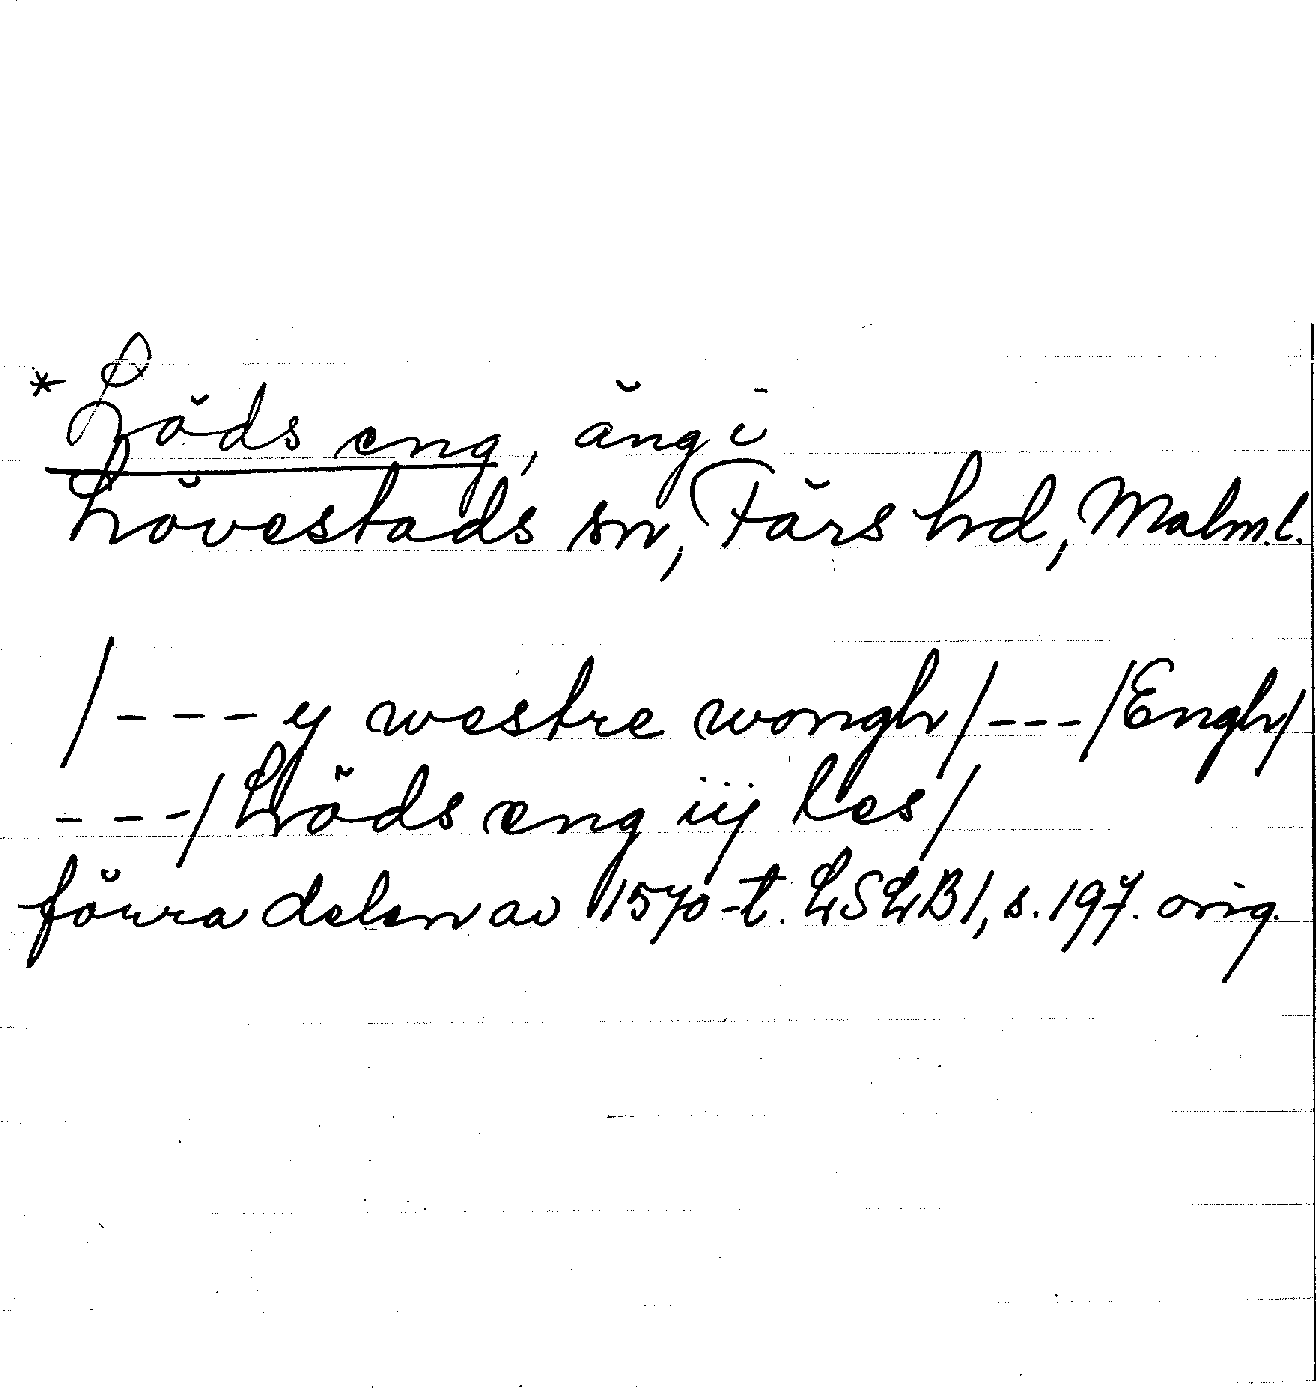 * Löds eng, äng i
Lövestads sn, Färs hd, Malm.l.
/--- y westre wongh/---/Engh/
---/Löds eng iij les/
förra delen av 1570-t. LSLB 1, s. 197. orig.